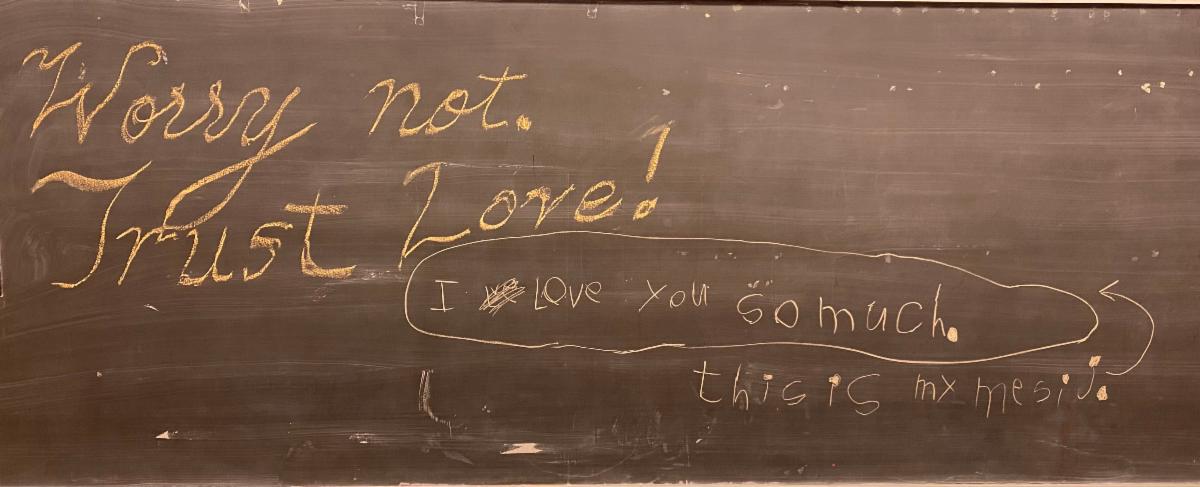 Worry not.
Trust Love!
I Love you so much.
this is my mesij.